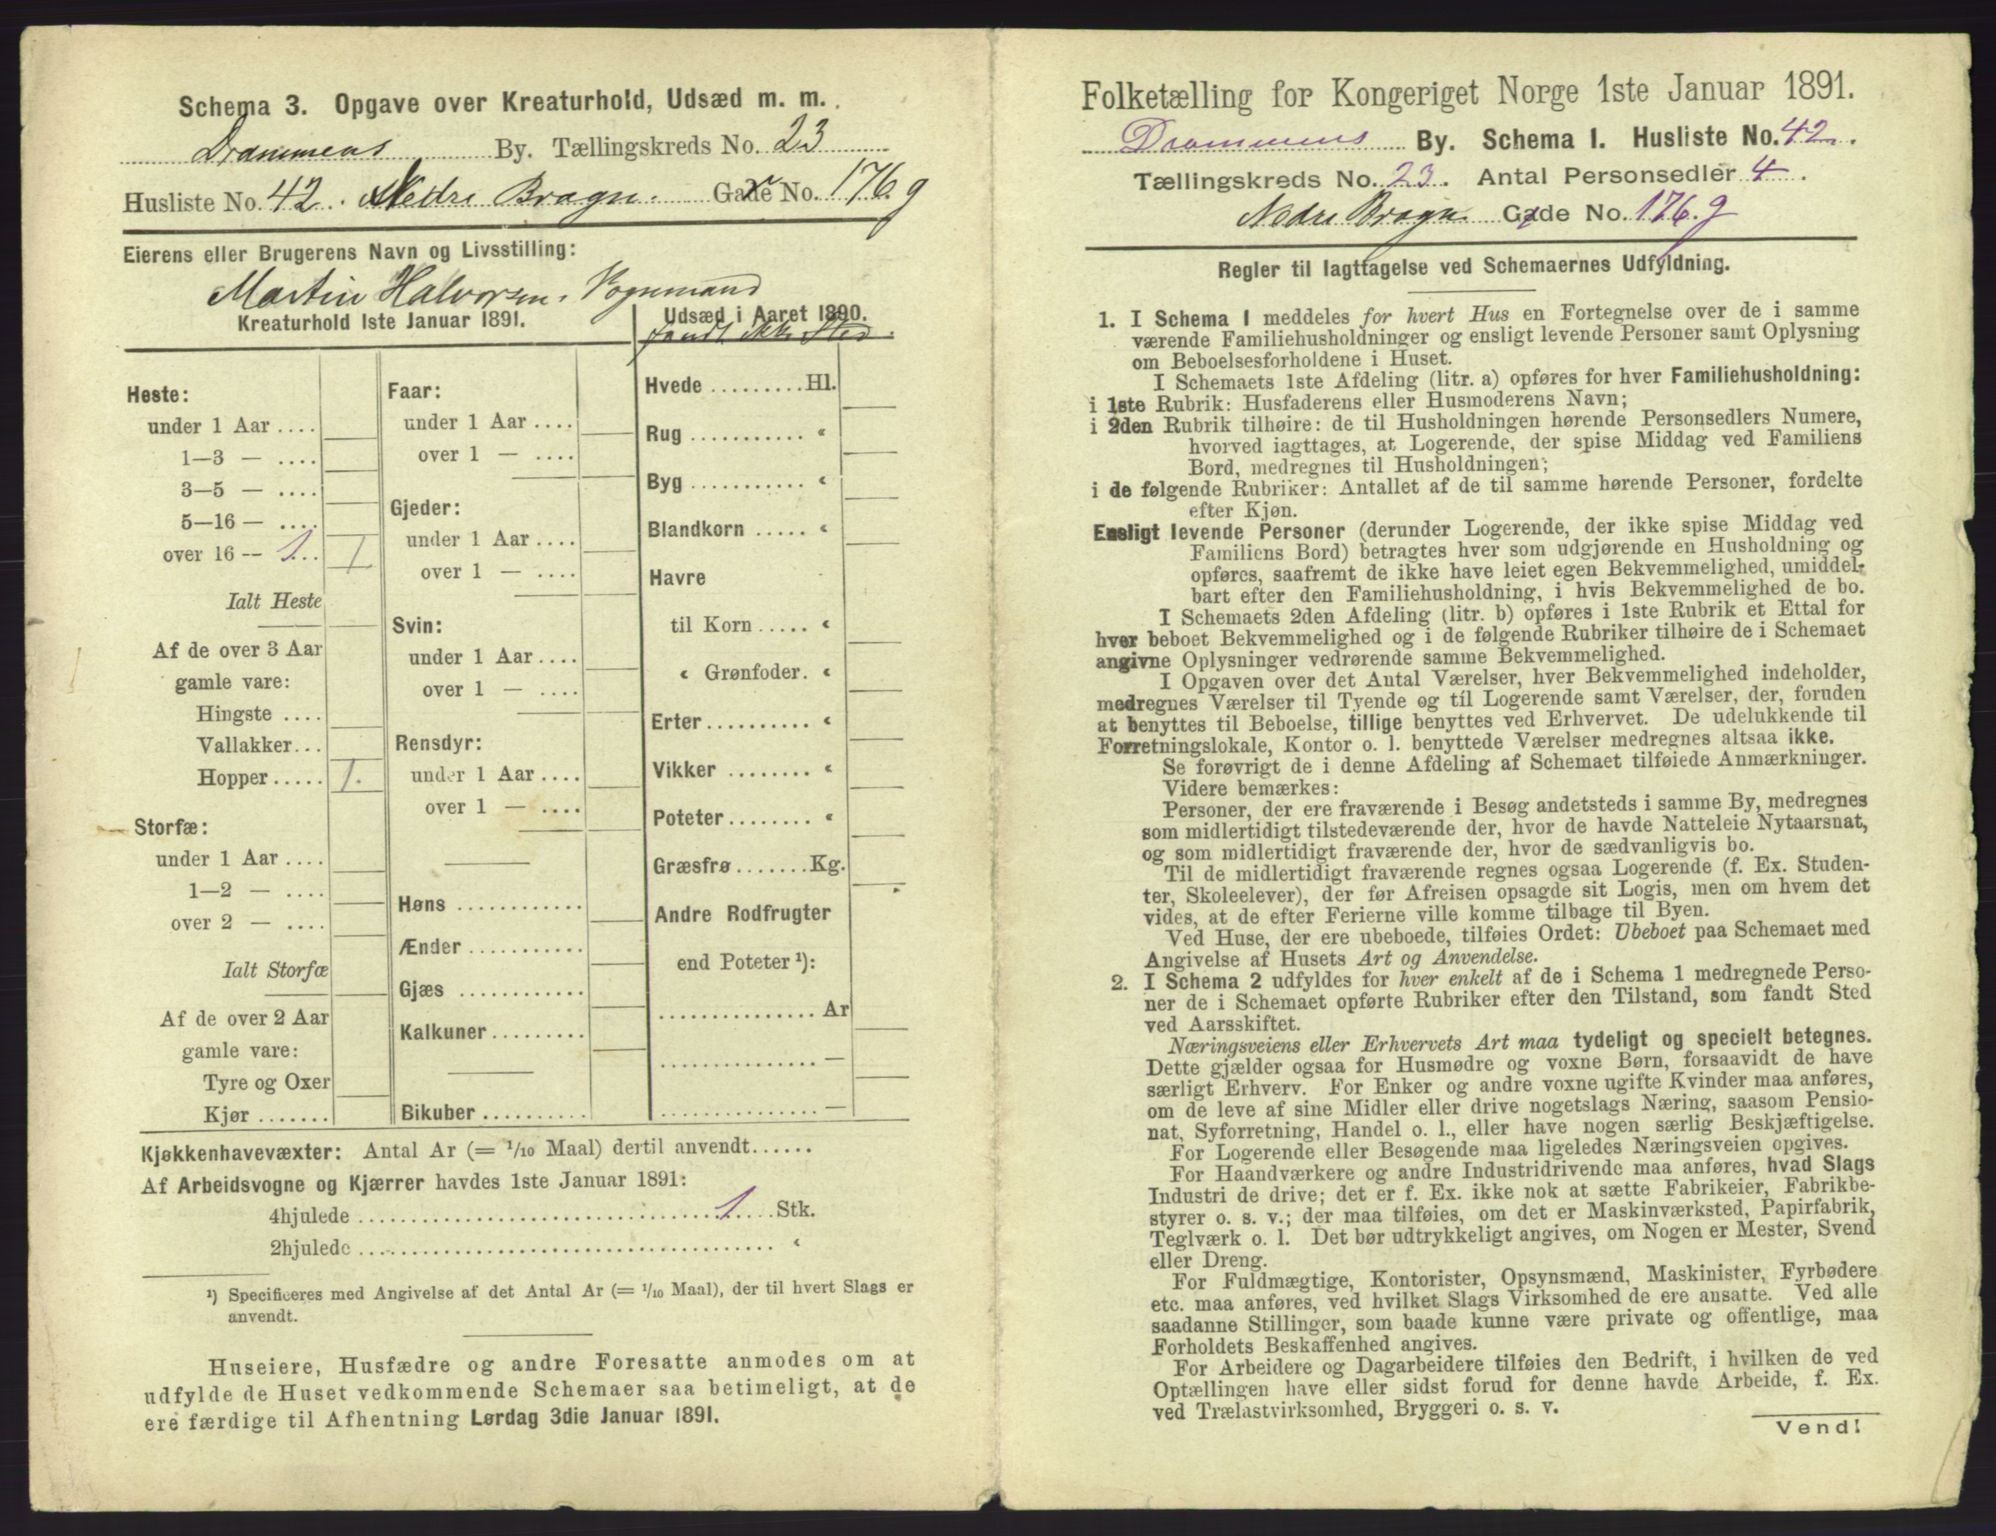 Schema 3. Opgave over Kreaturhold, Udsæd m. m.
Drammens By. Tællingskreds No. 23
Husliste No. 42. Nedre Bragn. Gade No. 176.g
Eierens eller Brugerens Navn og Livsstilling:
Martin Halvorsen. Vognmand
Kreaturhold 1ste Januar 1891.
Heste:
under 1 Aar ....
1—3 — ....
3—5 — ....
5—16 — ....
over 16 — 1. 1
Ialt Heste
Af de over 3 Aar
gamle vare:
Hingste ....
Vallakker...
Hopper ..... 1.
Storfæ:
under 1 Aar ....
1—2 — ....
over 2 — ....
Ialt Storfæ
Af de over 2 Aar
gamle vare:
Tyre og Oxer
Kjør .......
Faar:
under 1 Aar ....
over 1 — ....
Gjeder:
under 1 Aar ....
over 1 — ....
Svin:
under 1 Aar ....
over 1 — ....
Rensdyr:
under 1 Aar ....
over 1 — ....
Høns ............
Ænder ...........
Gjæs ............
Kalkuner .........
Bikuber ..........
Udsæd i Aaret 1890.
fandt ikke Sted.
Hvede .........Hl.
Rug ........... “
Byg ........... “
Blandkorn ..... “
Havre
til Korn ..... “
“ Grønfoder. “
Erter.......... “
Vikker ........ “
Poteter........ “
Græsfrø .......Kg.
Andre Rodfrugter
end Poteter ¹):
............... Ar
............... —
............... —
Kjøkkenhavevæxter: Antal Ar (= 1/10 Maal) dertil anvendt......
Af Arbeidsvogne og Kjærrer havdes 1ste Januar 1891:
4hjulede .................................. 1 .... Stk.
2hjulede ....................................... “
¹) Specificeres med Angivelse af det Antal Ar (= 1/10 Maal), der til hvert Slags er
anvendt.
Huseiere, Husfædre og andre Foresatte anmodes om at
udfylde de Huset vedkommende Schemaer saa betimeligt, at de
ere færdige til Afhentning Lørdag 3die Januar 1891.
Folketælling for Kongeriget Norge 1ste Januar 1891.
Drammens By. Schema 1. Husliste No. 42.
Tællingskreds No. 23. Antal Personsedler 4.
Nedre Bragn. Gade No. 176.g
Regler til Iagttagelse ved Schemaernes Udfyldning.
1. I Schema 1 meddeles for hvert Hus en Fortegnelse over de i samme
værende Familiehusholdninger og ensligt levende Personer samt Oplysning
om Beboelsesforholdene i Huset.
I Schemaets 1ste Afdeling (litr. a) opføres for hver Familiehusholdning:
i 1ste Rubrik: Husfaderens eller Husmoderens Navn;
i 2den Rubrik tilhøire: de til Husholdningen hørende Personsedlers Numere,
hvorved iagttages, at Logerende, der spise Middag ved Familiens
Bord, medregnes til Husholdningen;
i de følgende Rubriker: Antallet af de til samme hørende Personer, fordelte
efter Kjøn.
Ensligt levende Personer (derunder Logerende, der ikke spise Middag ved
Familiens Bord) betragtes hver som udgjørende en Husholdning og
opføres, saafremt de ikke have leiet egen Bekvemmelighed, umiddel-
bart efter den Familiehusholdning, i hvis Bekvemmelighed de bo.
I Schemaets 2den Afdeling (litr. b) opføres i 1ste Rubrik et Ettal for
hver beboet Bekvemmelighed og i de følgende Rubriker tilhøire de i Schemaet
angivne Oplysninger vedrørende samme Bekvemmelighed.
I Opgaven over det Antal Værelser, hver Bekvemmelighed indeholder,
medregnes Værelser til Tyende og til Logerende samt Værelser, der, foruden
at benyttes til Beboelse, tillige benyttes ved Erhvervet. De udelukkende til
Forretningslokale, Kontor o. l. benyttede Værelser medregnes altsaa ikke.
Se forøvrigt de i denne Afdeling af Schemaet tilføiede Anmærkninger.
Videre bemærkes:
Personer, der ere fraværende i Besøg andetsteds i samme By, medregnes
som midlertidigt tilstedeværende der, hvor de havde Natteleie Nytaarsnat,
og som midlertidigt fraværende der, hvor de sædvanligvis bo.
Til de midlertidigt fraværende regnes ogsaa Logerende (f. Ex. Studen-
ter, Skoleelever), der før Afreisen opsagde sit Logis, men om hvem det
vides, at de efter Ferierne ville komme tilbage til Byen.
Ved Huse, der ere ubeboede, tilføies Ordet: Ubeboet paa Schemaet med
Angivelse af Husets Art og Anvendelse.
2. I Schema 2 udfyldes for hver enkelt af de i Schema 1 medregnede Perso-
ner de i Schemaet opførte Rubriker efter den Tilstand, som fandt Sted
ved Aarsskiftet.
Næringsveiens eller Erhvervets Art maa tydeligt og specielt betegnes.
Dette gjælder ogsaa for Husmødre og voxne Børn, forsaavidt de have
særligt Erhverv. For Enker og andre voxne ugifte Kvinder maa anføres,
om de leve af sine Midler eller drive nogetslags Næring, saasom Pensio-
nat, Syforretning, Handel o. l., eller have nogen særlig Beskjæftigelse.
For Logerende eller Besøgende maa ligeledes Næringsveien opgives.
For Haandværkere og andre Industridrivende maa anføres, hvad Slags
Industri de drive; det er f. Ex. ikke nok at sætte Fabrikeier, Fabrikbe-
styrer o. s. v.; der maa tilføies, om det er Maskinværksted, Papirfabrik,
Teglværk o. l. Det bør udtrykkeligt angives, om Nogen er Mester, Svend
eller Dreng.
For Fuldmægtige, Kontorister, Opsynsmænd, Maskinister, Fyrbødere
etc. maa anføres, ved hvilket Slags Virksomhed de ere ansatte. Ved alle
saadanne Stillinger, som baade kunne være private og offentlige, maa
Forholdets Beskaffenhed angives.
For Arbeidere og Dagarbeidere tilføies den Bedrift, i hvilken de ved
Optællingen have eller sidst forud for denne havde Arbeide, f. Ex.
ved Trælastvirksomhed, Bryggeri o. s. v.
Vend!